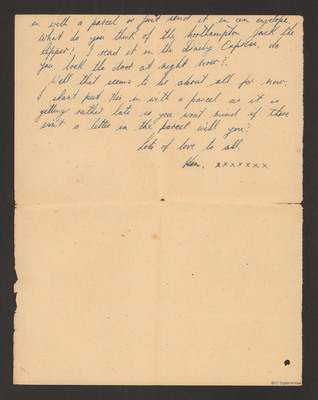 in with a parcel or just send it in an envelope.
What do you think of the Northampton Jack the
Ripper? I read it in the Daily Express, do
you lock the door at night now?.
Well that seems to be about all for now.
I shant put this in with a parcel as it is
getting rather late, so you wont mind if there
isn't a letter in the parcel will you?
Lots of love to all,
Ken. xxxxxxx
IBCC Digital Archive